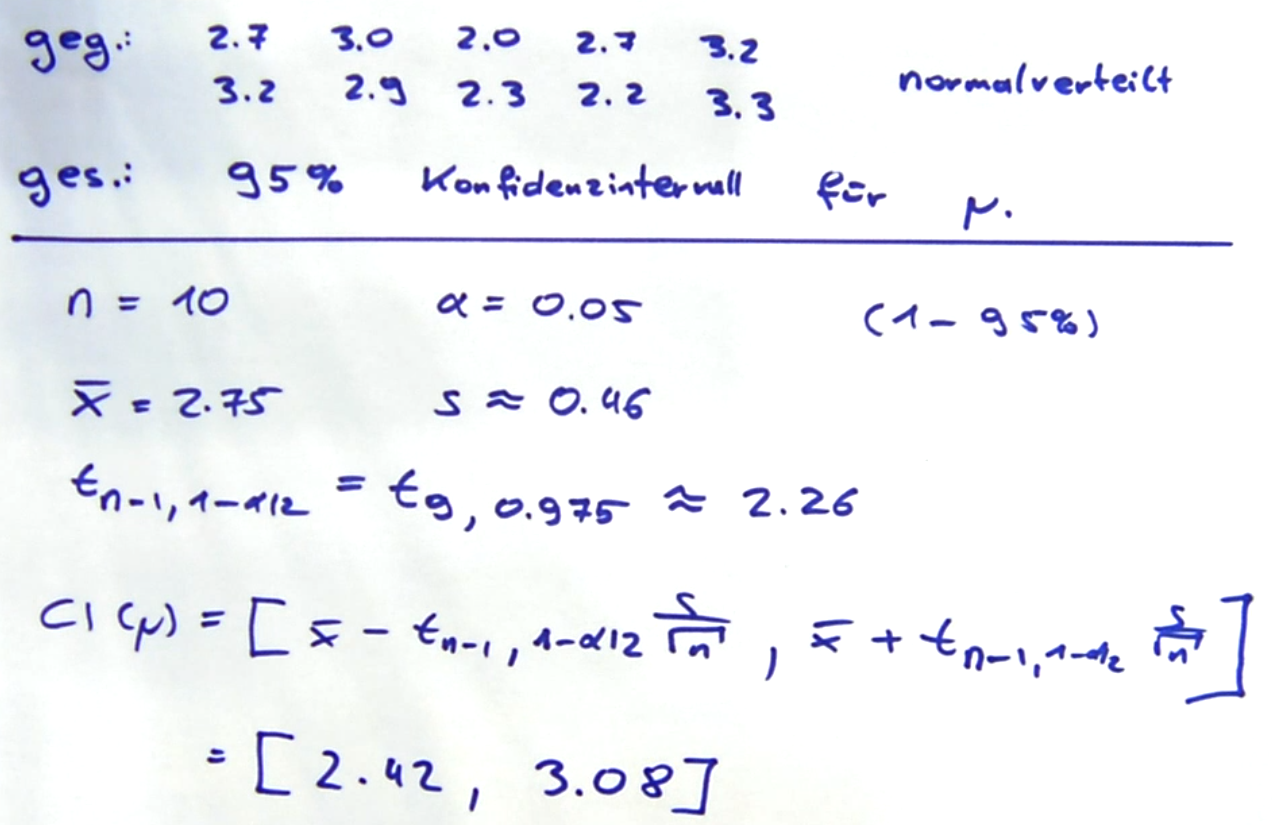 geg.: 2.7 3.0 2.0 2.7 3.2
3.2 2.9 2.3 2.2 3.3 normalverteilt
ges.: 95% Konfidenzintervall für μ.
n = 10 α = 0.05 (1 - 95%)
x̄ = 2.75 s ≈ 0.46
t_{n-1, 1-α/2} = t_{9, 0.975} ≈ 2.26
CI(μ) = [x̄ - t_{n-1, 1-α/2} s/√n, x̄ + t_{n-1, 1-α/2} s/√n]
= [2.42, 3.08]